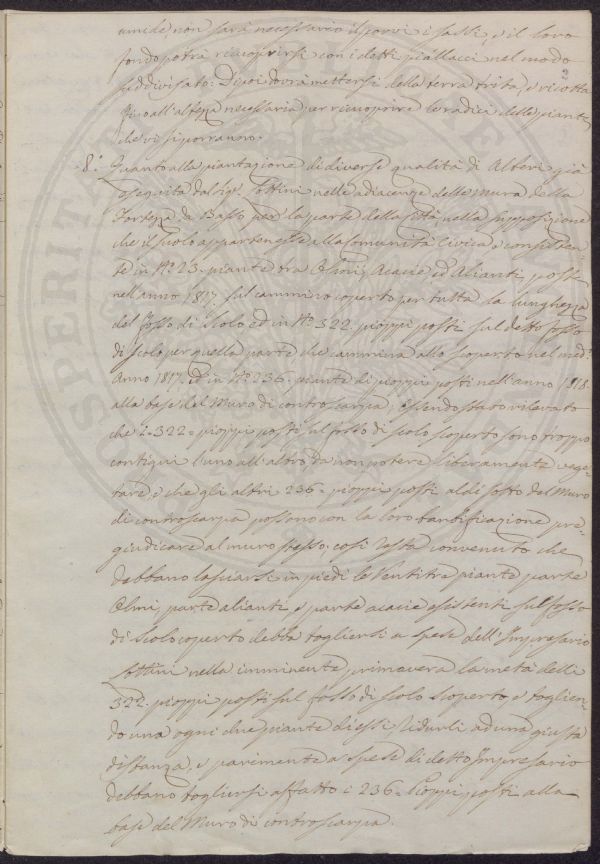 umide non sarà necessario il porvi i sassi, e il loro
fondo potrà ricoprirsi con i detti piallacci nel modo
suddivisato: Dipoi dovrà mettersi della terra trita, e ricotta
fino all'altezza necessaria per ricoprire le radici delle piante
che vi si porranno.
8.° Quanto alla piantazione di diverse qualità di Alberi già
eseguita dal Sig.r Sottini nelle adiacenze delle mura della
Fortezza da Basso per la parte della Città, nella supposizione
che il suolo appartenesse alla Comunità Civica e consisten-
te in N.° 23. piante tra Olmi, Acacie, ed Alianti posti
nell'anno 1817. sul cammino coperto per tutta la lunghezza
del fosso di scolo ed in N.° 322. pioppi posti sul detto fosso
di scolo per quella parte che cammina allo scoperto nel med.°
Anno 1817. Ed in N.° 236. piante di pioppi posti nell'anno 1818.
alla base del Muro di controscarpa, essendo stato rilevato
che i 322. pioppi posti sul fosso di scolo scoperto sono troppo
contigui l'uno all'altro da non potere liberamente vege-
tare, e che gli altri 236. pioppi posti al di sotto del Muro
di controscarpa possono con la loro barbificazione pre-
giudicare al muro stesso, così resta convenuto che
debbano lasciarsi in piedi le Ventitre piante parte
Olmi, parte alianti, e parte acacie esistenti sul fosso
di scolo coperto debba togliersi a spese dell'Impresario
Sottini nella imminente primavera la metà delli
322. pioppi posti sul fosso di scolo scoperto, e toglien-
do una ogni due piante di essi ridurli ad una giusta
distanza, e parimente a spese di detto Impresario
debbano togliersi affatto i 236. Pioppi posti alla
base del Muro di controscarpa.